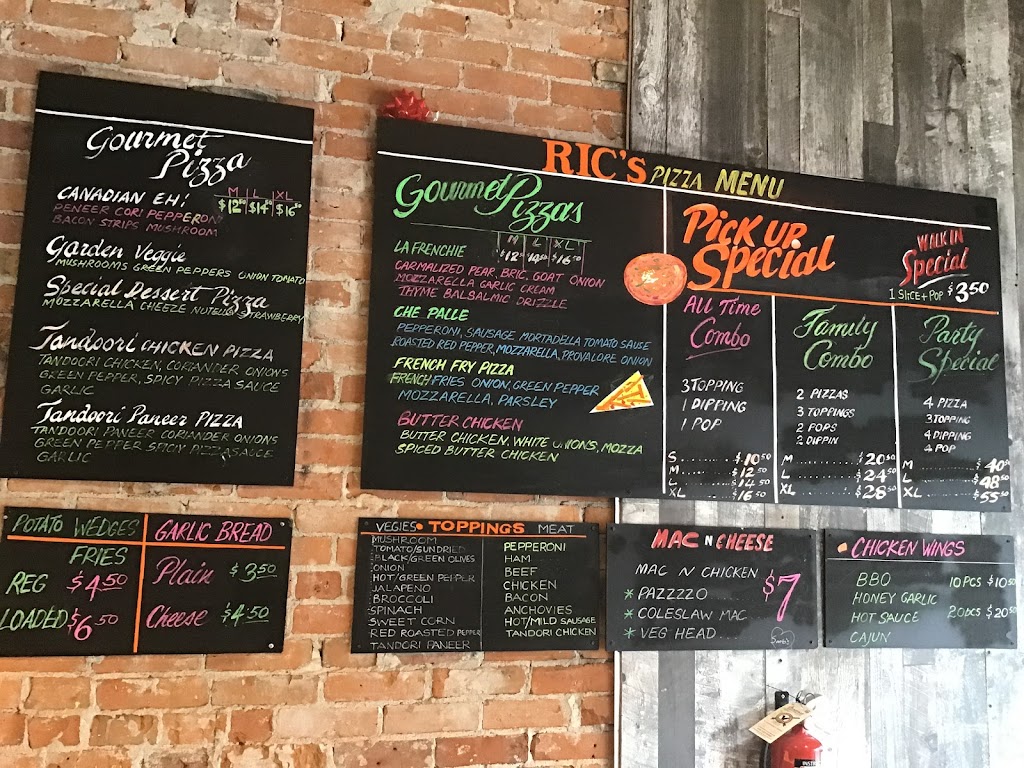 Gourmet
Pizza
CANADIAN EH!
M L XL
$12.50 $14.50 $16.50
PENEER CORI PEPPERONI
BACON STRIPS MUSHROOM
Garden Veggie
MUSHROOMS GREEN PEPPERS ONION TOMATO
Special Dessert Pizza
MOZZARELLA CHEEZE NUTELLA STRAWBERRY
Tandoori CHICKEN PIZZA
TANDOORI CHICKEN, CORIANDER ONIONS
GREEN PEPPER, SPICY PIZZA SAUCE
GARLIC
Tandoori Paneer PIZZA
TANDOORI PANEER CORIANDER ONIONS
GREEN PEPPER SPICY PIZZA SAUCE
GARLIC
RIC'S PIZZA MENU
Gourmet Pizzas
M L XL
LA FRENCHIE $12 14.50 $16.50
CARMALIZED PEAR, BRIC, GOAT ONION
MOZZARELLA GARLIC CREAM
THYME BALBALMIC DRIZZLE
CHE PALLE
PEPPERONI, SAUSAGE MORTADELLA TOMATO SAUSE
ROASTED RED PEPPER, MOZZARELLA, PROVALORE ONION
FRENCH FRY PIZZA
FRENCH FRIES ONION, GREEN PEPPER
MOZZARELLA, PARSLEY
BUTTER CHICKEN
BUTTER CHICKEN, WHITE ONIONS, MOZZA
SPICED BUTTER CHICKEN
PICK UP
Special
WALK IN
Special
1 SLICE + POP $3.50
All Time
Combo
3 TOPPING
1 DIPPING
1 POP
S........$10.50
M........$12.50
L........$14.50
XL.......$16.50
Family
Combo
2 PIZZAS
3 TOPPINGS
2 POPS
2 DIPPIN
M........$20.50
L........$24.50
XL.......$28.50
Party
Special
4 PIZZA
3 TOPPING
4 DIPPING
4 POP
M........$40.50
L........$48.50
XL.......$55.50
POTATO WEDGES
FRIES
REG $4.50
LOADED $6.50
GARLIC BREAD
Plain $3.50
Cheese $4.50
VEGIES • TOPPINGS MEAT
MUSHROOM
TOMATO/SUNDRIED
BLACK/GREEN OLIVES
ONION
HOT/GREEN PEPPER
JALAPENO
BROCCOLI
SPINACH
SWEET CORN
RED ROASTED PEPPER
TANDORI PANEER
PEPPERONI
HAM
BEEF
CHICKEN
BACON
ANCHOVIES
HOT/MILD SAUSAGE
TANDORI CHICKEN
MAC N CHEESE
MAC N CHICKEN
* PAZZZZO
* COLESLAW MAC
* VEG HEAD
$7
CHICKEN WINGS
BBQ 10 PCS $10.50
HONEY GARLIC
HOT SAUCE 20 PCS $20.50
CAJUN